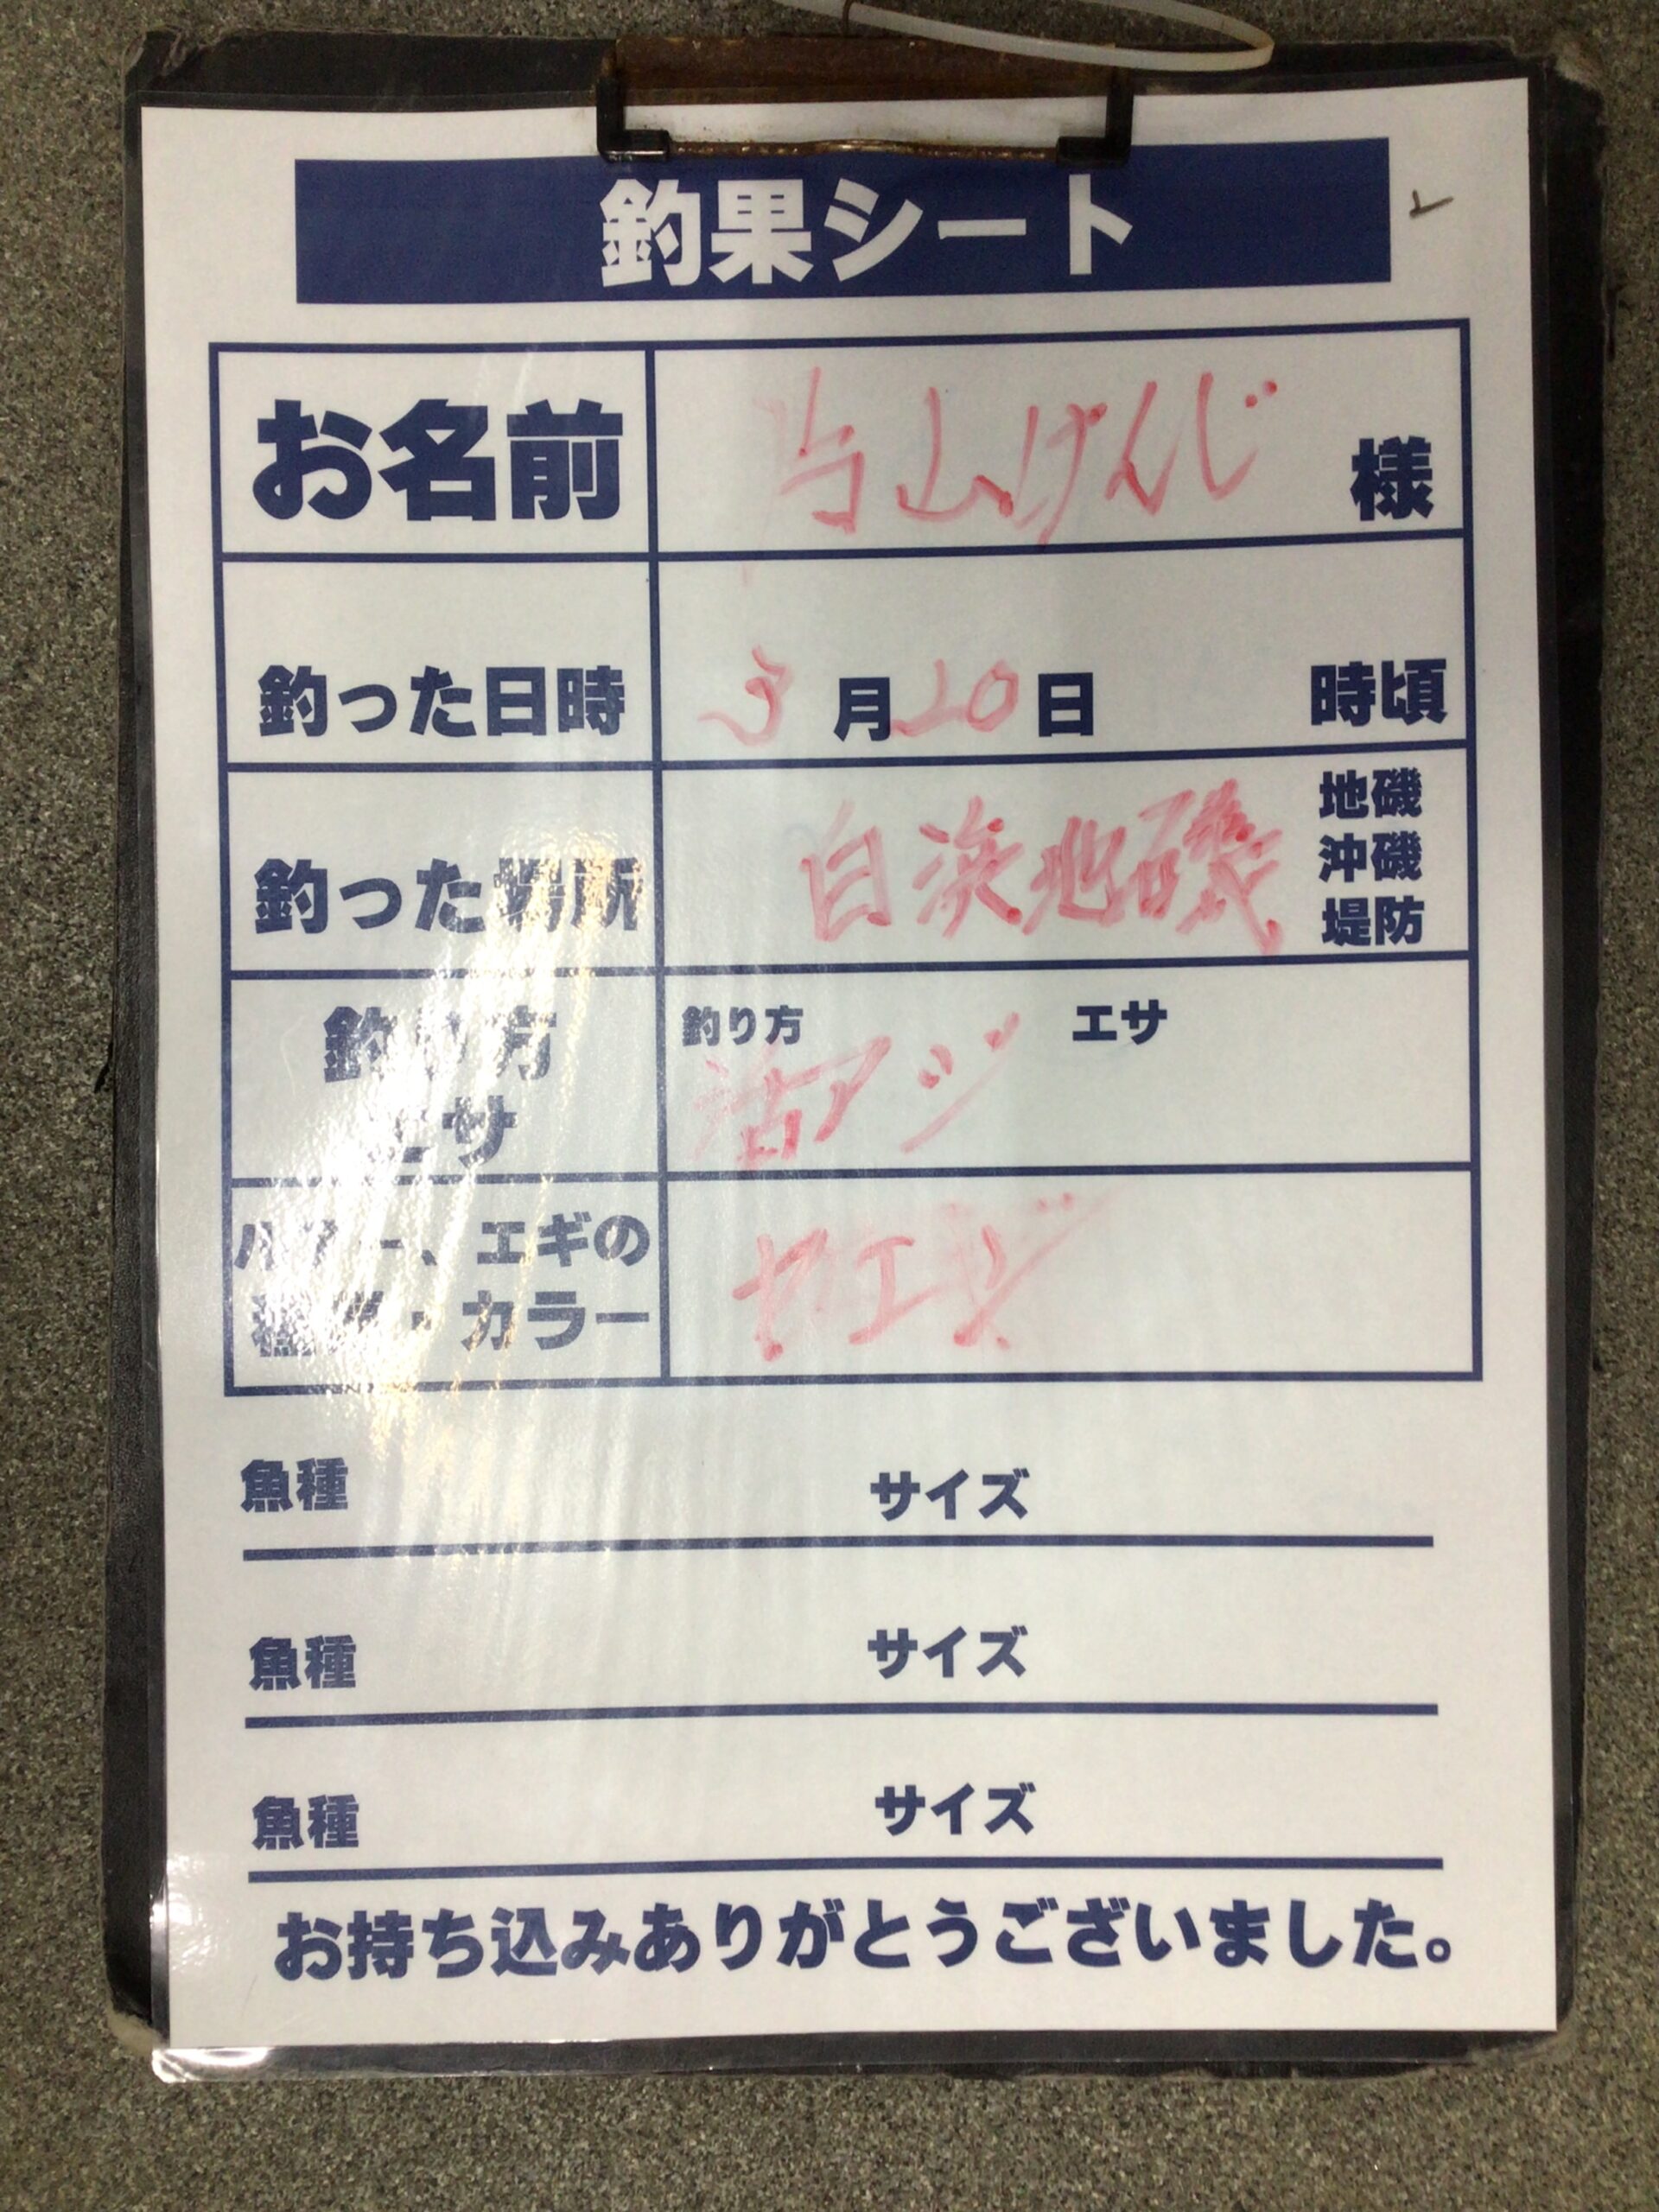 釣果シート
お名前 片山げんじ 様
釣った日時 3月20日 時頃
釣った場所 白浜地磯 地磯
沖磯
堤防
釣り方
エサ
釣り方 エサ
活アジ
ルアー、エギの
種類・カラー
ヤエン
魚種 サイズ
魚種 サイズ
魚種 サイズ
お持ち込みありがとうございました。